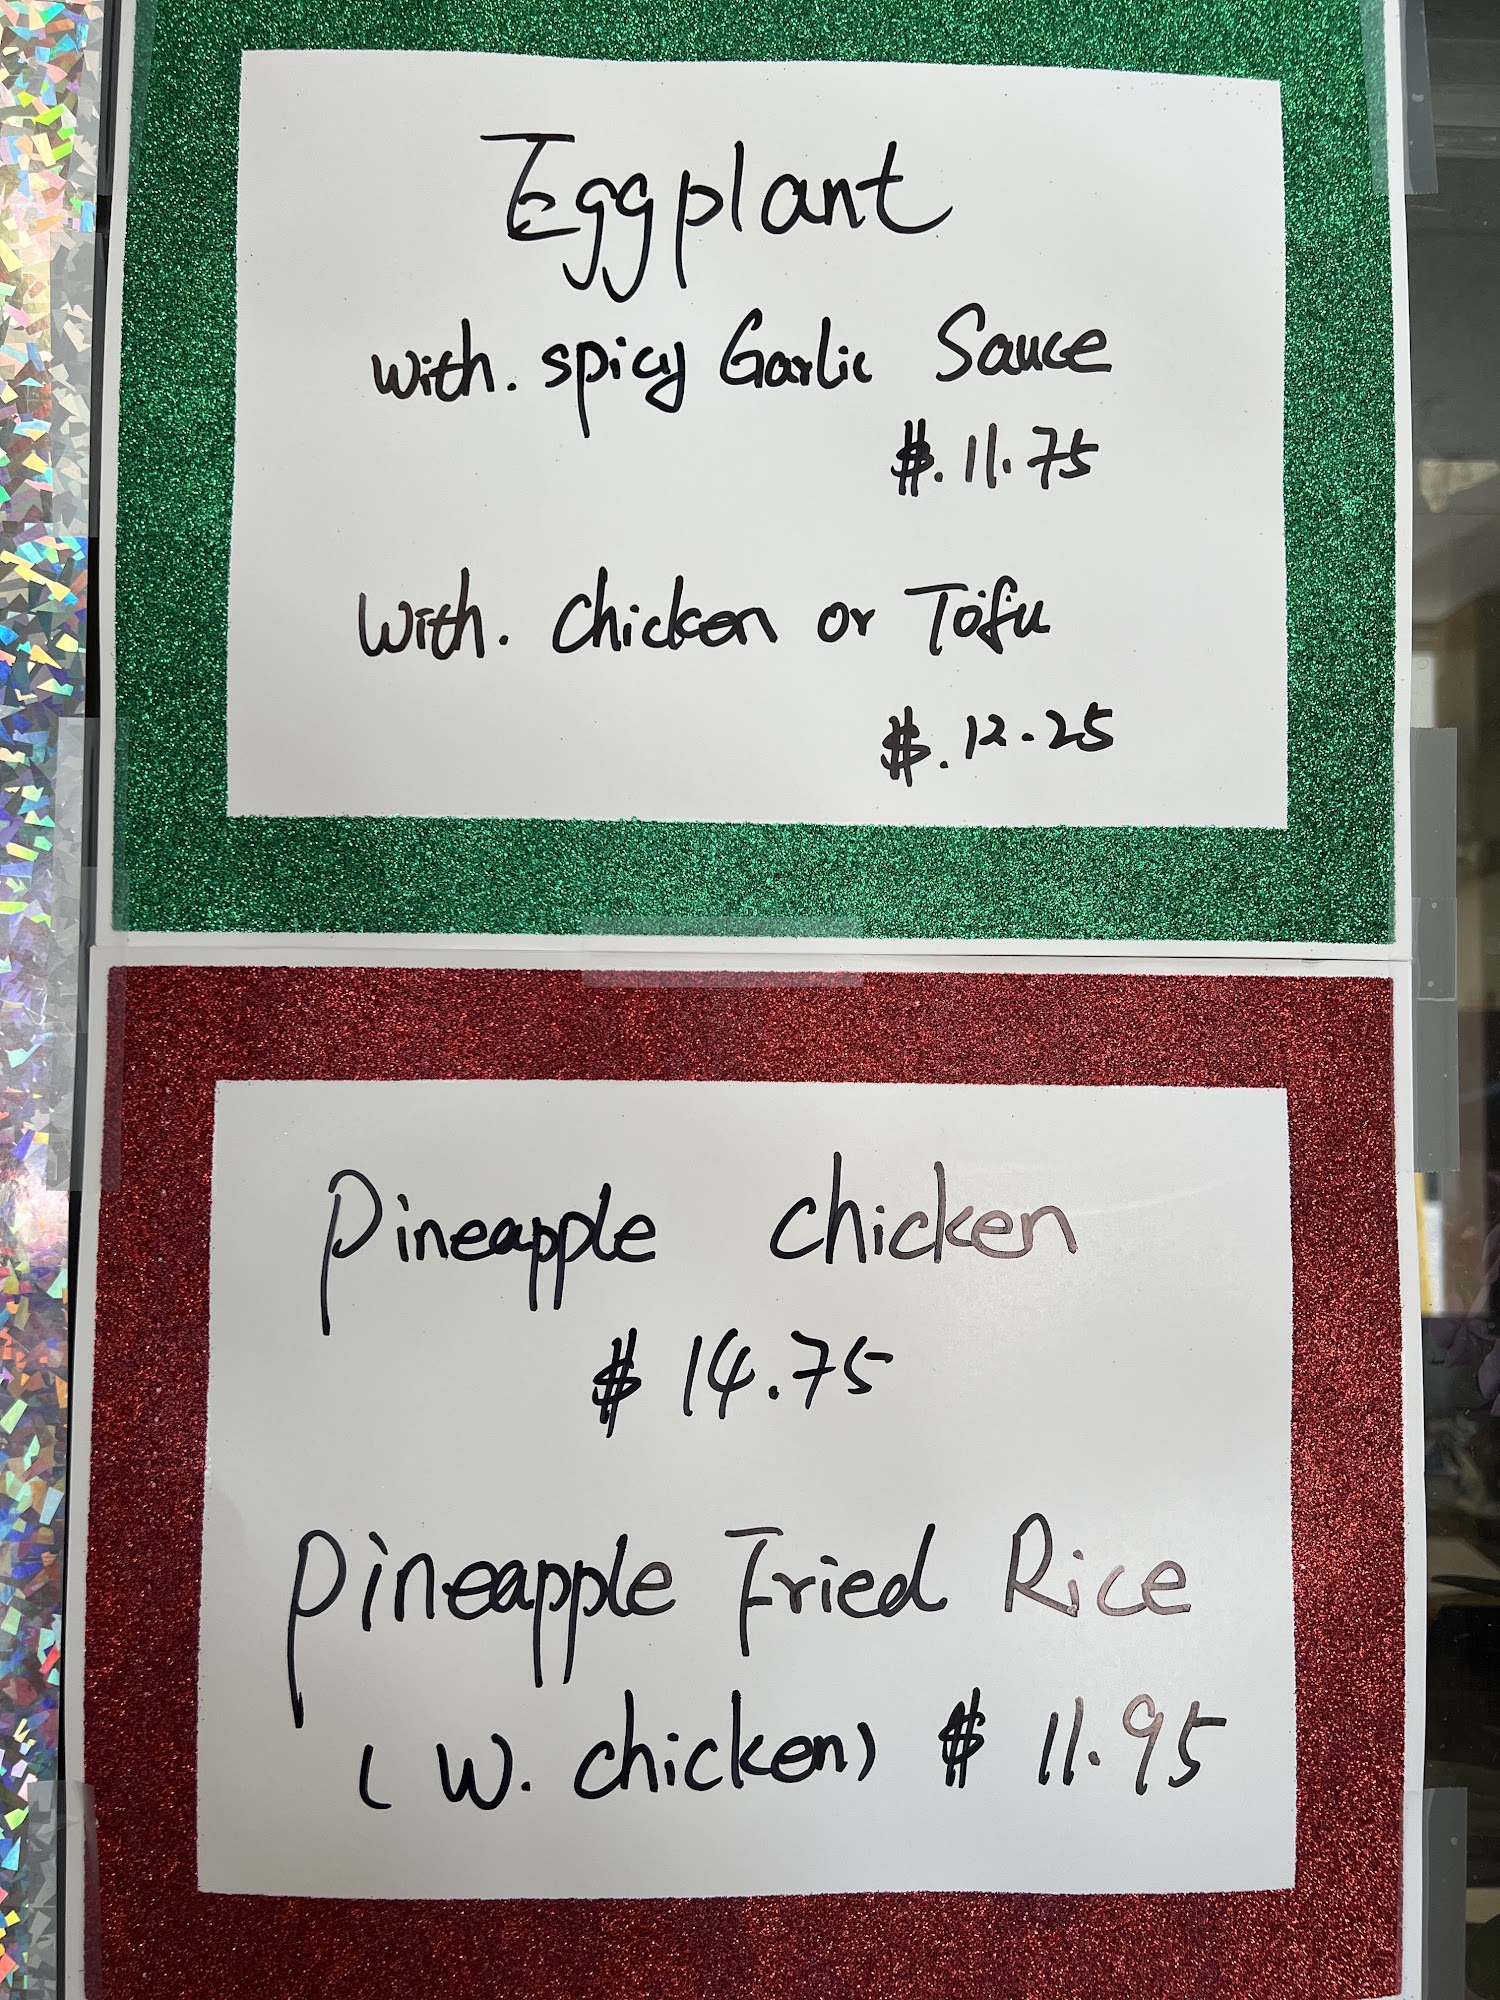 Eggplant
with. spicy Garlic Sauce
$. 11.75
with. chicken or Tofu
$. 12.25
Pineapple chicken
$ 14.75
Pineapple Fried Rice
(W. chicken) $ 11.95